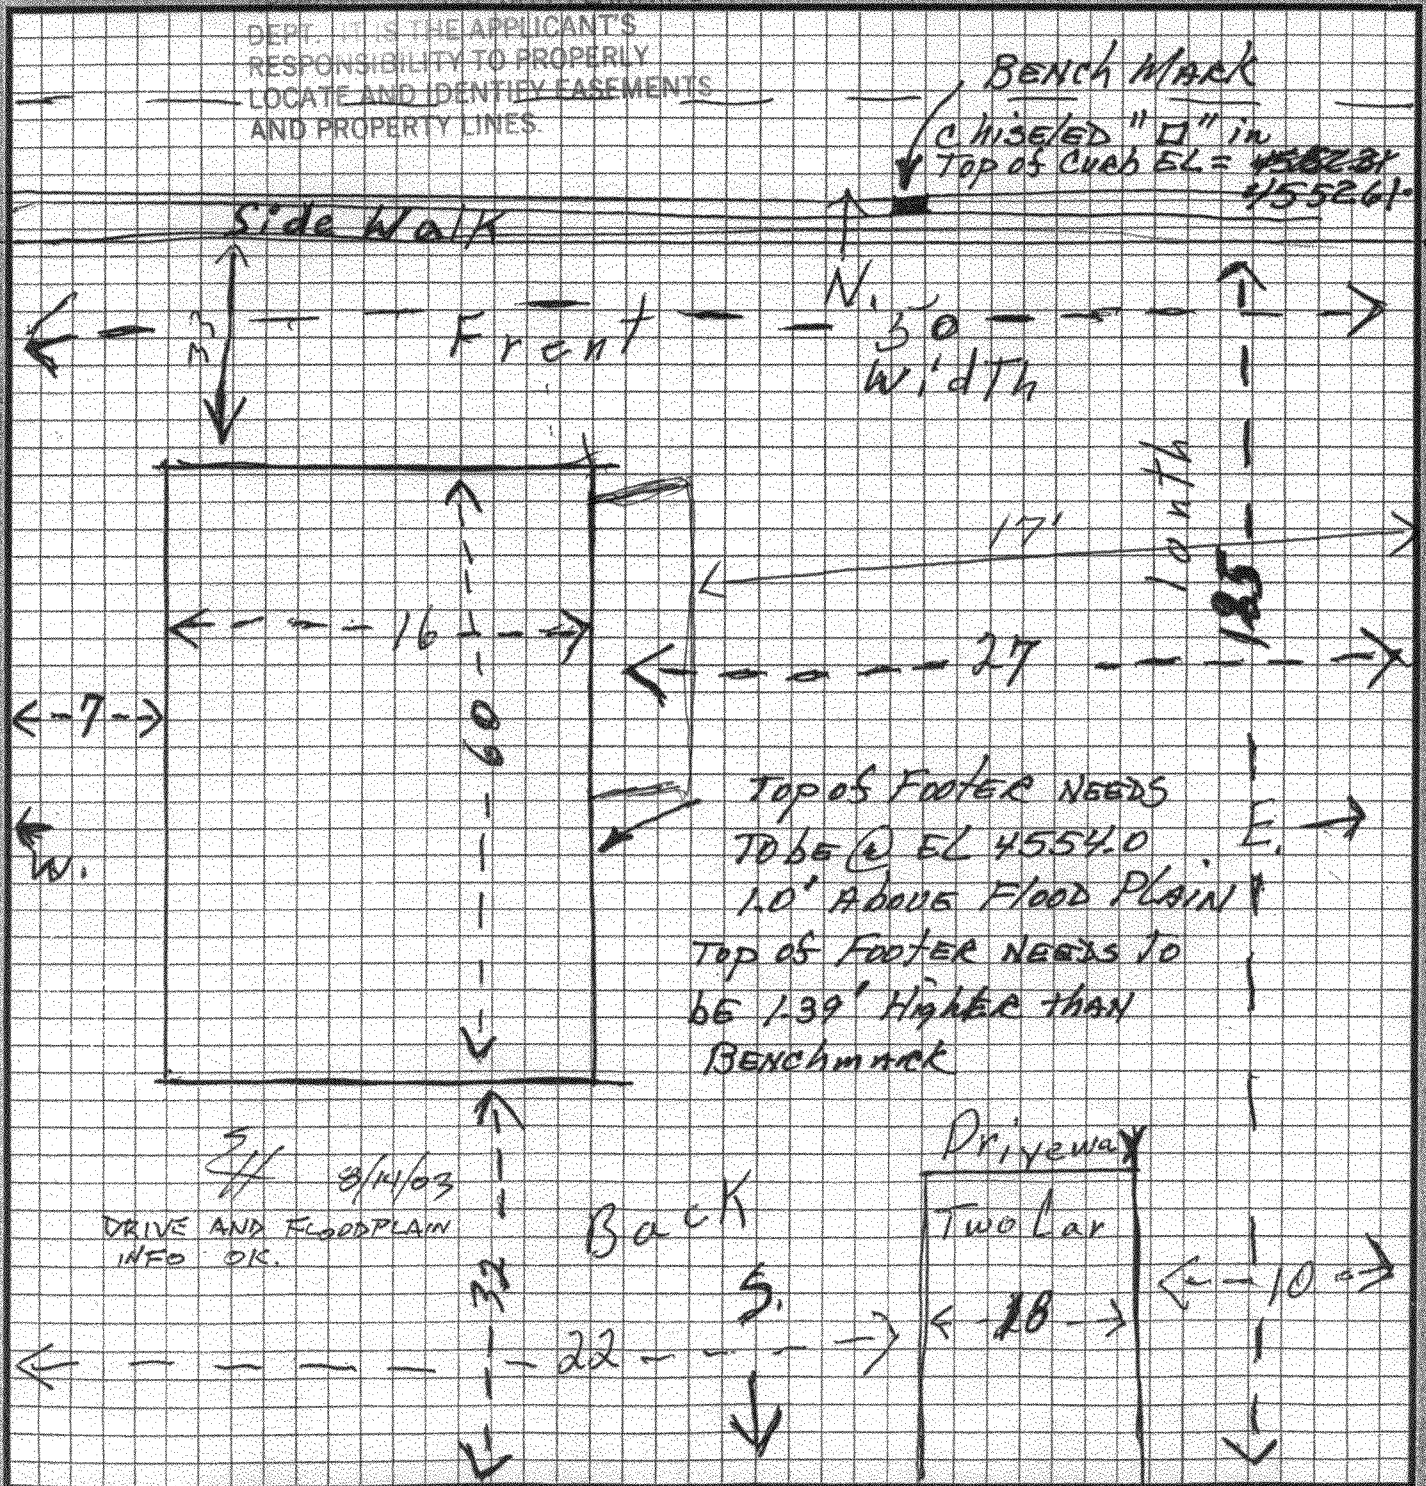 DEPT. IT IS THE APPLICANT'S
RESPONSIBILITY TO PROPERLY
LOCATE AND IDENTIFY EASEMENTS
AND PROPERTY LINES.
BENCH MARK
ChisELED "□" in
Top of Curb EL =
Side Walk
N.
33
Front
50
Width
17'
lonTh
125
16
27
7
60
W.
E.
Top of FootER NEEDS
To bE @ EL 4554.0
1.0' Above Flood PLAIN
Top of FootER NEEDS To
bE 1.39' HighER thAN
BENChmArk
8/14/03
DRIVE AND FLOODPLAIN
INFO OK.
Driveway
Two Car
BacK
S.
32
18
10
22